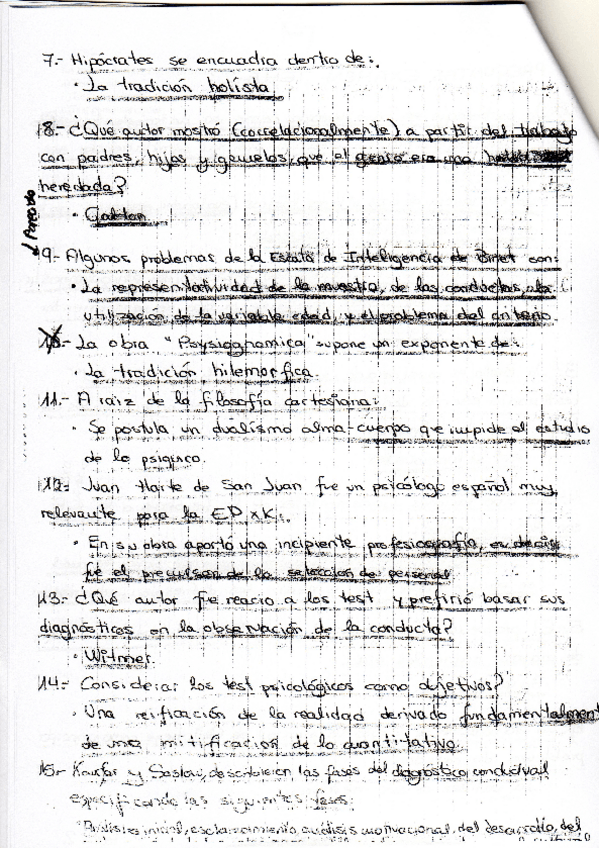 7.- Hipócrates se encuadra dentro de:
· La tradición holista
8.- ¿Qué autor mostró (correlacionalmente) a partir del trabajo
con padres, hijos y gemelos, que el genio era una
heredada?
· Galton
9.- Algunos problemas de la Escala de Inteligencia de Binet son:
· La representatividad de la muestra, de las conductas, la
utilización de la variable edad, y el problema del criterio.
10.- La obra "Psysiognomica" supone un exponente de:
· La tradición hilemorfica.
11.- A raíz de la filosofía cartesiana:
· Se postula un dualismo alma-cuerpo que impide el estudio
de lo psíquico.
12.- Juan Harte de San Juan fue un psicólogo español muy
relevante para la EP xk:
· En su obra aportó una incipiente profesiografía, es decir
fue el precursor de la selección de personal
13.- ¿Qué autor fue reacio a los test y prefirió basar sus
diagnósticos en la observación de la conducta?
· Witmer.
14.- Considerar los test psicológicos como objetivos?
· Una reificación de la realidad derivado fundamentalment
de una mitificación de lo cuantitativo.
15.- Kanfer y Saslow, describieron las fases del diagnóstico conductual
especificando las siguientes fases:
Análisis inicial, esclarecimiento, análisis motivacional, del desarrollo, del